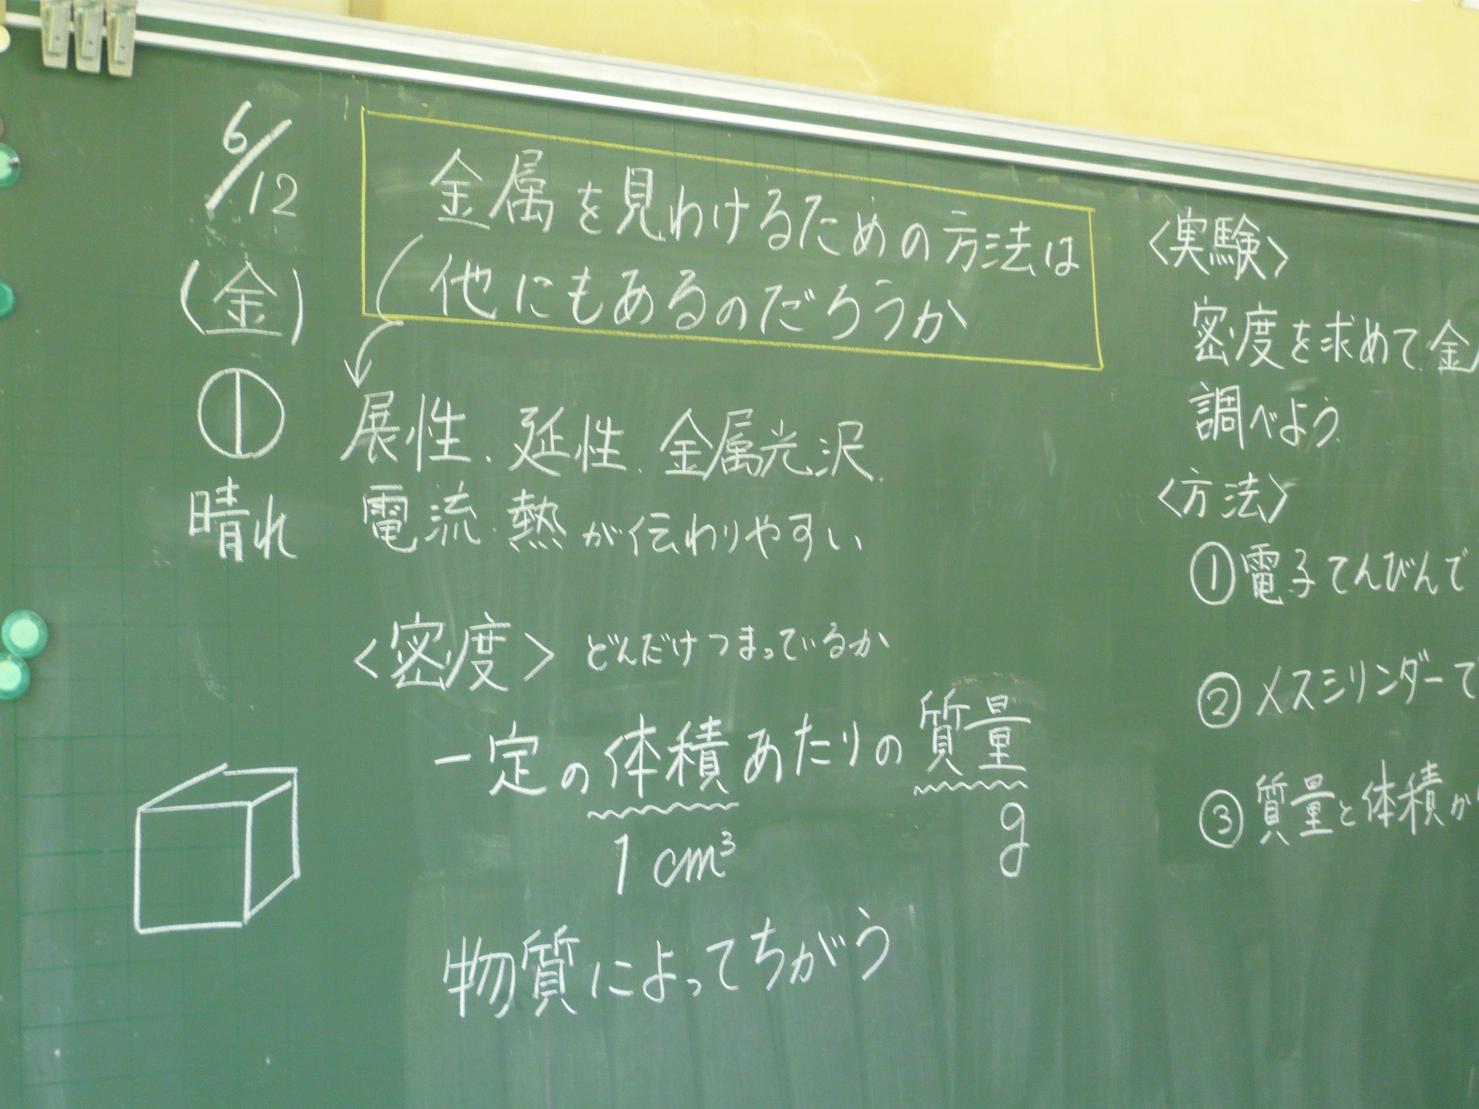 6/12
(金)
晴れ
金属を見わけるための方法は
他にもあるのだろうか
展性、延性、金属光沢、
電流、熱が伝わりやすい
<密度> どんだけつまっているか
一定の体積あたりの質量
1cm³ g
物質によってちがう
<実験>
密度を求めて金
調べよう
<方法>
①電子てんびんで
②メスシリンダーで
③質量と体積か